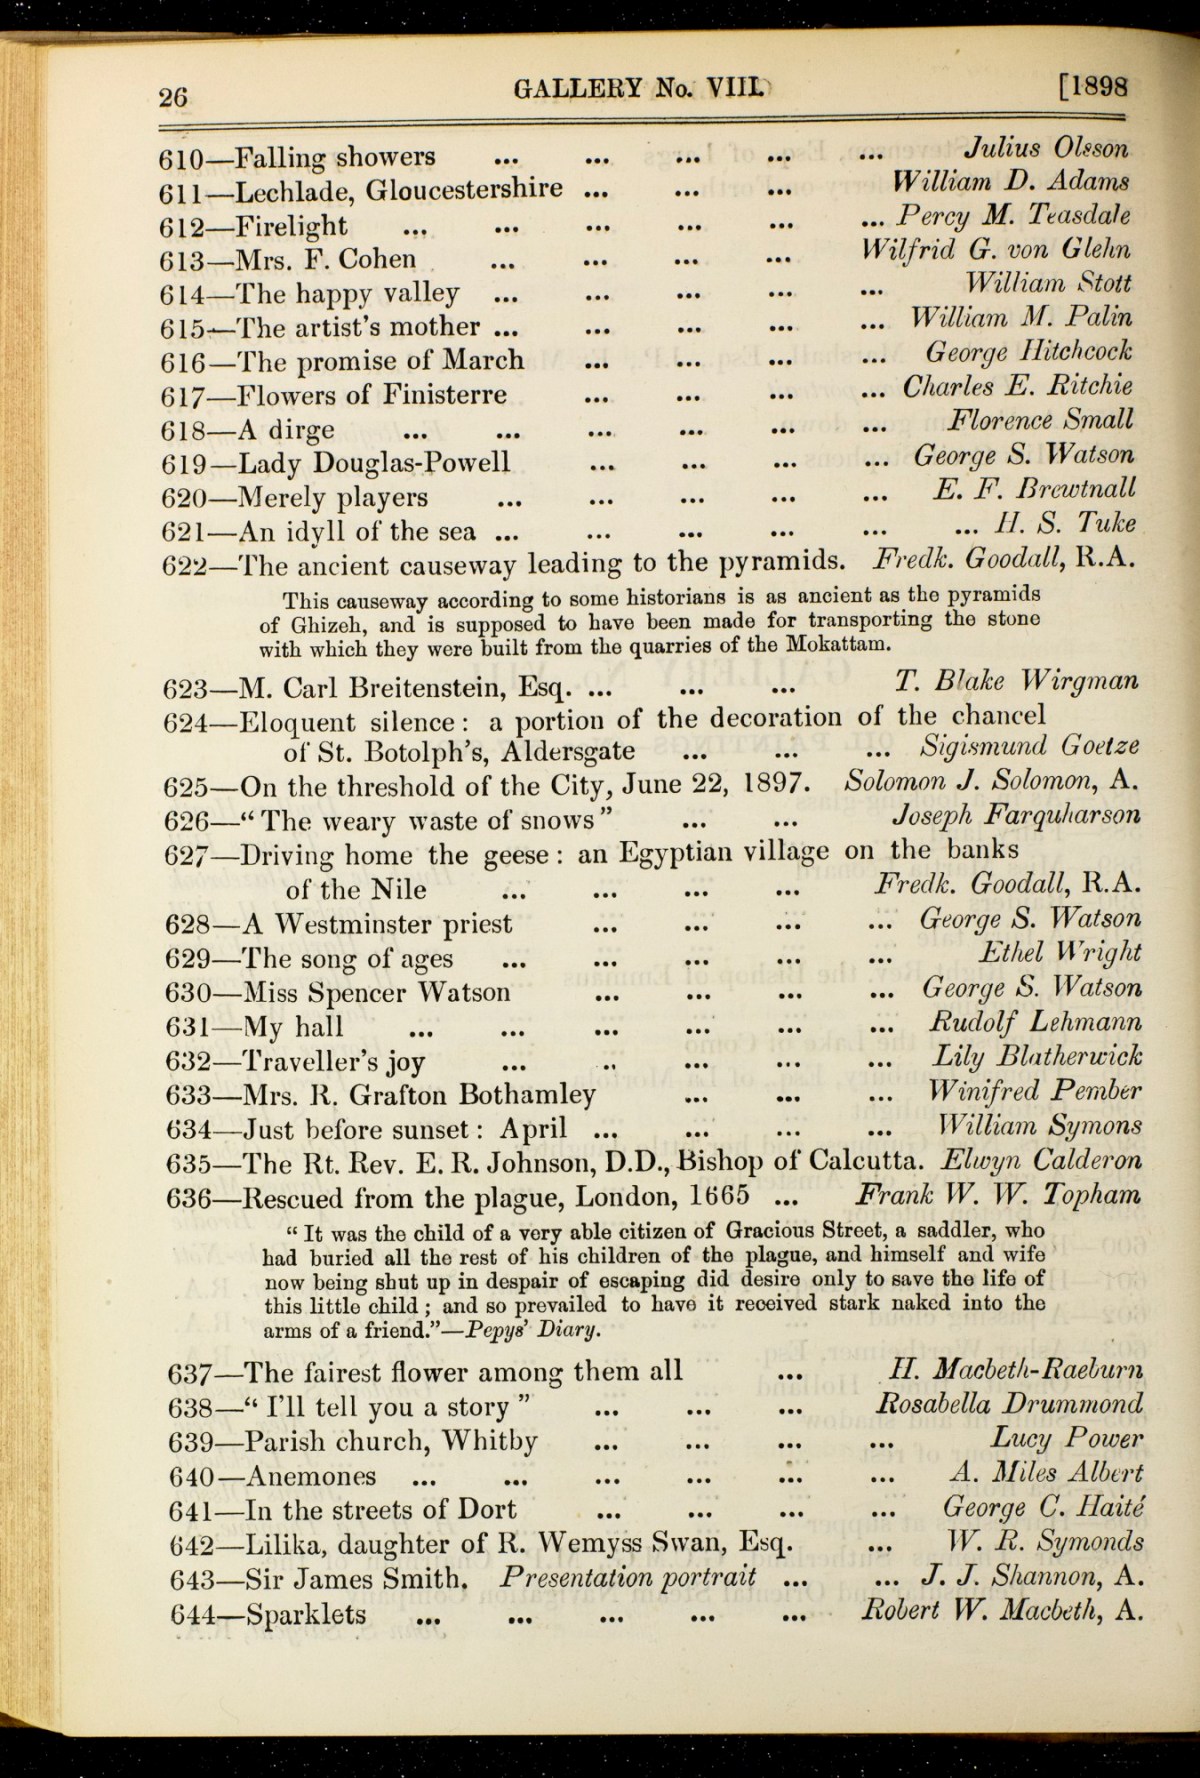 26 GALLERY No. VIII. [1898
610—Falling showers ... ... ... ... ... Julius Olsson
611—Lechlade, Gloucestershire ... ... ... William D. Adams
612—Firelight ... ... ... ... ... ... Percy M. Teasdale
613—Mrs. F. Cohen ... ... ... ... Wilfrid G. von Glehn
614—The happy valley ... ... ... ... ... William Stott
615—The artist's mother ... ... ... ... ... William M. Palin
616—The promise of March ... ... ... ... George Hitchcock
617—Flowers of Finisterre ... ... ... ... Charles E. Ritchie
618—A dirge ... ... ... ... ... ... Florence Small
619—Lady Douglas-Powell ... ... ... ... George S. Watson
620—Merely players ... ... ... ... ... E. F. Brewtnall
621—An idyll of the sea ... ... ... ... ... ... H. S. Tuke
622—The ancient causeway leading to the pyramids. Fredk. Goodall, R.A.
This causeway according to some historians is as ancient as the pyramids
of Ghizeh, and is supposed to have been made for transporting the stone
with which they were built from the quarries of the Mokattam.
623—M. Carl Breitenstein, Esq. ... ... ... T. Blake Wirgman
624—Eloquent silence: a portion of the decoration of the chancel
of St. Botolph's, Aldersgate ... ... ... Sigismund Goetze
625—On the threshold of the City, June 22, 1897. Solomon J. Solomon, A.
626—“The weary waste of snows” ... ... Joseph Farquharson
627—Driving home the geese: an Egyptian village on the banks
of the Nile ... ... ... ... Fredk. Goodall, R.A.
628—A Westminster priest ... ... ... ... George S. Watson
629—The song of ages ... ... ... ... ... Ethel Wright
630—Miss Spencer Watson ... ... ... ... George S. Watson
631—My hall ... ... ... ... ... ... Rudolf Lehmann
632—Traveller's joy ... .. ... ... ... Lily Blatherwick
633—Mrs. R. Grafton Bothamley ... ... ... Winifred Pember
634—Just before sunset: April ... ... ... ... William Symons
635—The Rt. Rev. E. R. Johnson, D.D., Bishop of Calcutta. Elwyn Calderon
636—Rescued from the plague, London, 1665 ... Frank W. W. Topham
“It was the child of a very able citizen of Gracious Street, a saddler, who
had buried all the rest of his children of the plague, and himself and wife
now being shut up in despair of escaping did desire only to save the life of
this little child; and so prevailed to have it received stark naked into the
arms of a friend.”—Pepys' Diary.
637—The fairest flower among them all ... H. Macbeth-Raeburn
638—“I'll tell you a story” ... ... ... Rosabella Drummond
639—Parish church, Whitby ... ... ... ... Lucy Power
640—Anemones ... ... ... ... ... ... A. Miles Albert
641—In the streets of Dort ... ... ... ... George C. Haité
642—Lilika, daughter of R. Wemyss Swan, Esq. ... W. R. Symonds
643—Sir James Smith. Presentation portrait ... ... J. J. Shannon, A.
644—Sparklets ... ... ... ... ... Robert W. Macbeth, A.